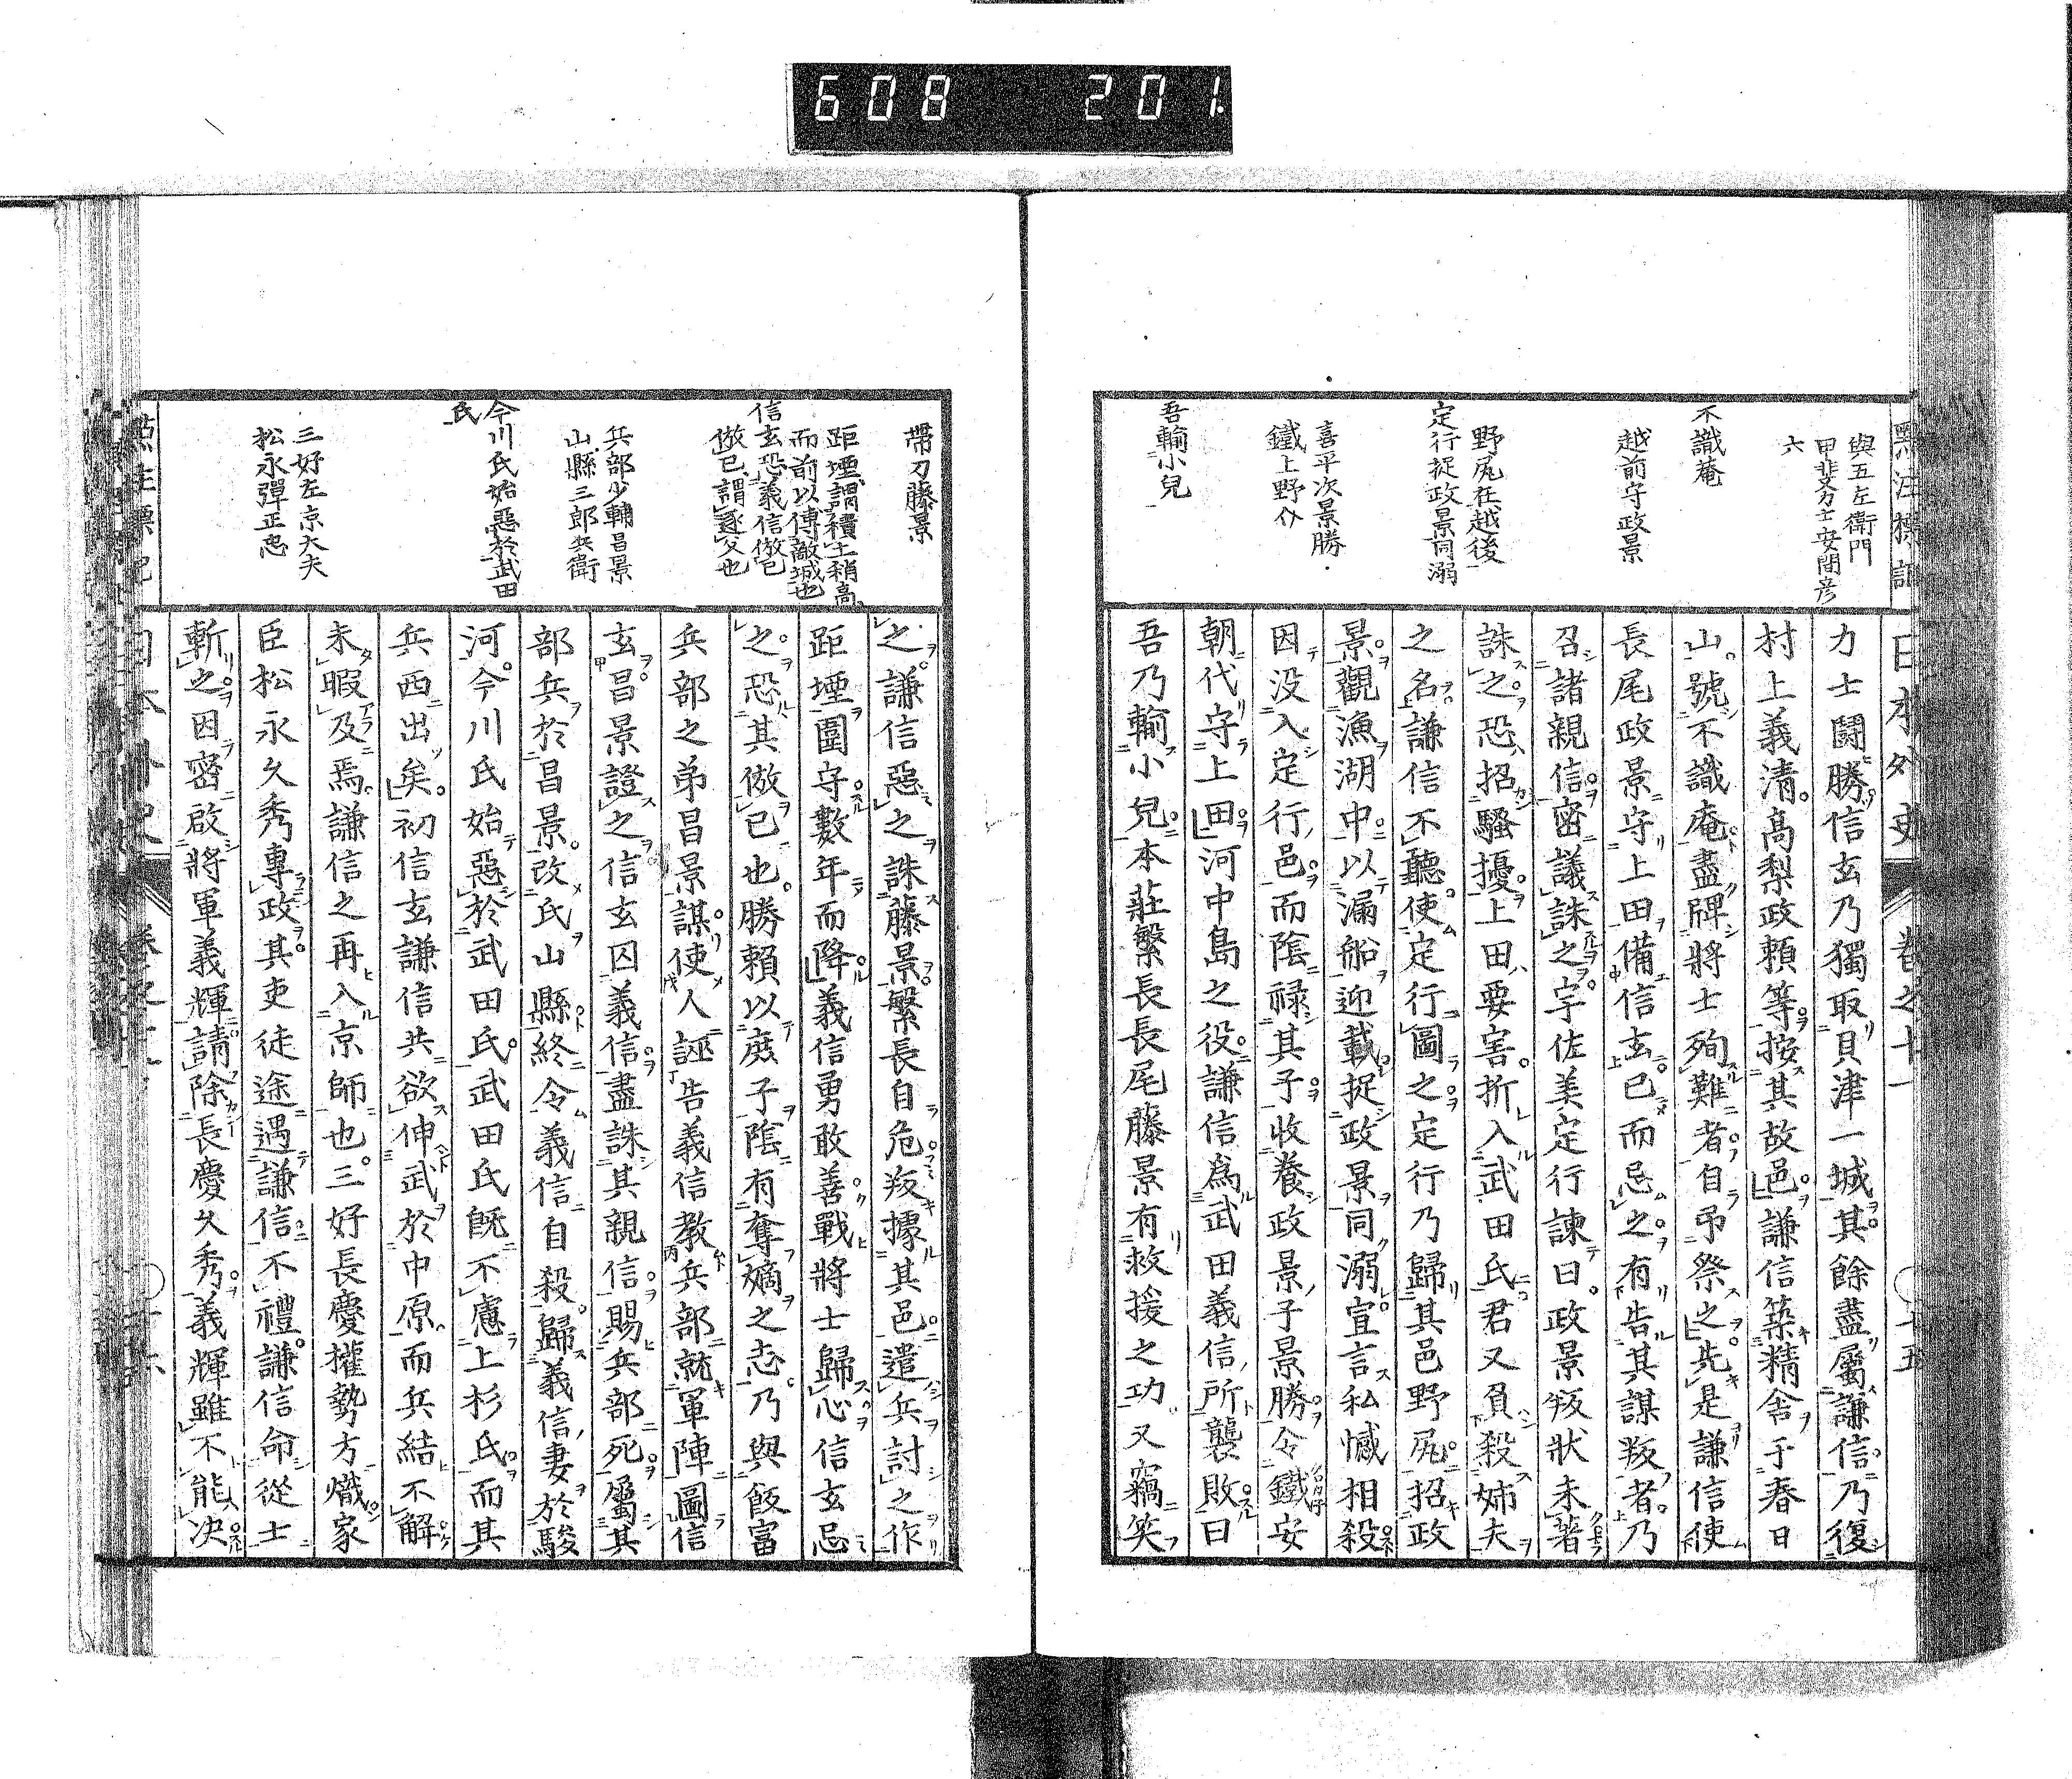 608 201
點注標記
與五左衛門
甲斐力士安間彦
六
不識菴
越前守政景
野尻在越後
定行捉政景同溺
喜平次景勝
鐵上野介
吾輸小兒
日本外史 卷之十一 ○二十五
力士鬪勝信玄乃獨取貝津一城其餘盡屬謙信乃復
村上義清高梨政頼等按其故邑謙信築精舎于春日
山號不識庵盡牌將士殉難者自弔祭之先是謙信使
長尾政景守上田備信玄已而忌之有告其謀叛者乃
召諸親信密議誅之宇佐美定行諫曰政景叛状未著
誅之恐招騷擾上田要害折入武田氏君又負殺姉夫
之名謙信不聽使定行圖之定行乃歸其邑野尻招政
景觀漁湖中以漏船迎載捉政景同溺宣言私憾相殺
因没入定行邑而陰禄其子收養政景子景勝令鐵安
朝代守上田河中島之役謙信爲武田義信所襲敗曰
吾乃輸小兒本莊繁長長尾藤景有救援之功又竊笑
帶刀藤景
距堙謂積土稍高
而前以傳敵城也
信玄恐義信倣已
倣已謂逐父也
兵部少輔昌景
山縣三郎兵衛
今川氏始惡於武田
氏
三好左京大夫
松永彈正忠
之謙信惡之誅藤景繁長自危叛據其邑遣兵討之作
距堙圍守數年而降義信勇敢善戰將士歸心信玄忌
之恐其倣已也勝頼以庶子陰有奪嫡之志乃與飯富
兵部之弟昌景謀使人誣告義信教兵部就軍陣圖信
玄昌景證之信玄囚義信盡誅其親信賜兵部死屬其
部兵於昌景改氏山縣終令義信自殺歸義信妻於駿
河今川氏始惡於武田氏武田氏既不慮上杉氏而其
兵西出矣初信玄謙信共欲伸武於中原而兵結不解
未暇及焉謙信之再入京師也三好長慶擅勢方熾家
臣松永久秀專政其吏徒途遇謙信不禮謙信命從士
斬之因密啟將軍義輝請除長慶久秀義輝雖不能决